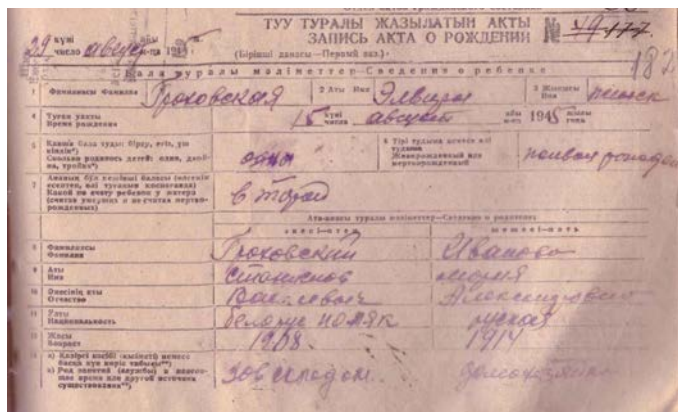 ТУУ ТУРАЛЫ ЖАЗЫЛАТЫН АКТЫ
ЗАПИСЬ АКТА О РОЖДЕНИИ №
29 күні число август айы м-ца 1945
(Бірінші данасы—Первый экз.)
Бала туралы мәліметтер—Сведения о ребенке
1 Фамилиясы Фамилия Гроховская 2 Аты Имя Элвира 3 Жынысы Пол женск
4 Туған уақыты Время рождения 15 күні числа август айы м-ц 1945 жылы года
5 Қанша бала туды: біреу, егіз, үш
Сколько родилось детей: один, двой-
ня, тройня*)
6 Тірі туды ма немесе өлі
тудыма
Живорожденный или
мертворожденный
7 Ананың бұл нешінші баласы (өлгенін
есептеп, өлі туғанын қоспағанда)
Какой по счету ребенок у матери
(считая умерших и не считая мертво-
рожденных)
второй
Ата-анасы туралы мәліметтер—Сведения о родителях
әкесі—отец шешесі—мать
8 Фамилиясы Фамилия Гроховский Иванова
9 Аты Имя Мария
10 Әкесінің аты Отчество
11 Ұлты Национальность белорус поляк руская
12 Жасы Возраст 1908 1914
13 а) Қазіргі кәсібі (қызметі) немесе
басқа күн көріс табысы**)
б) Род занятий (службы) в настоя-
щее время или другой источник
существования**)
зав складом домохозяйка